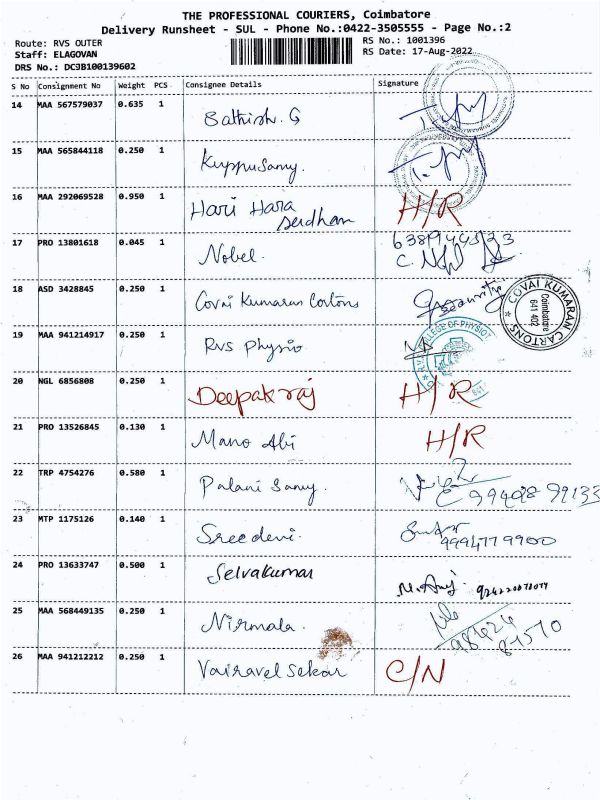 THE PROFESSIONAL COURIERS, Coimbatore
Delivery Runsheet - SUL - Phone No.:0422-3505555 - Page No.:2
Route: RVS OUTER RS No.: 1001396
Staff: ELAGOVAN RS Date: 17-Aug-2022
DRS No.: DC9B100139602
S No Consignment No Weight PCS Consignee Details Signature
14 MAA 567579037 0.635 1 Sathish. G
15 MAA 565844118 0.250 1 Kuppusamy.
16 MAA 292069528 0.950 1 Hari Hara H/R
Sudhan
17 PRO 13801618 0.045 1 Nobel.
18 ASD 3428845 0.250 1 Covai Kumaran Cortons
COVAI KUMARAN CARTONS
Coimbatore
641 402
19 MAA 941214917 0.250 1 RVS Physio
COLLEGE OF PHYSIOT
20 NGL 6856808 0.250 1 Deepak raj H/R
21 PRO 13526845 0.130 1 Mano Abi H/R
22 TRP 4754276 0.580 1 Palani Samy.
23 MTP 1175126 0.140 1 Sreedevi.
9994779900
24 PRO 13633747 0.500 1 Selvakumar
25 MAA 568449135 0.250 1 Nirmala.
26 MAA 941212212 0.250 1 Vairavel Sekar C/N